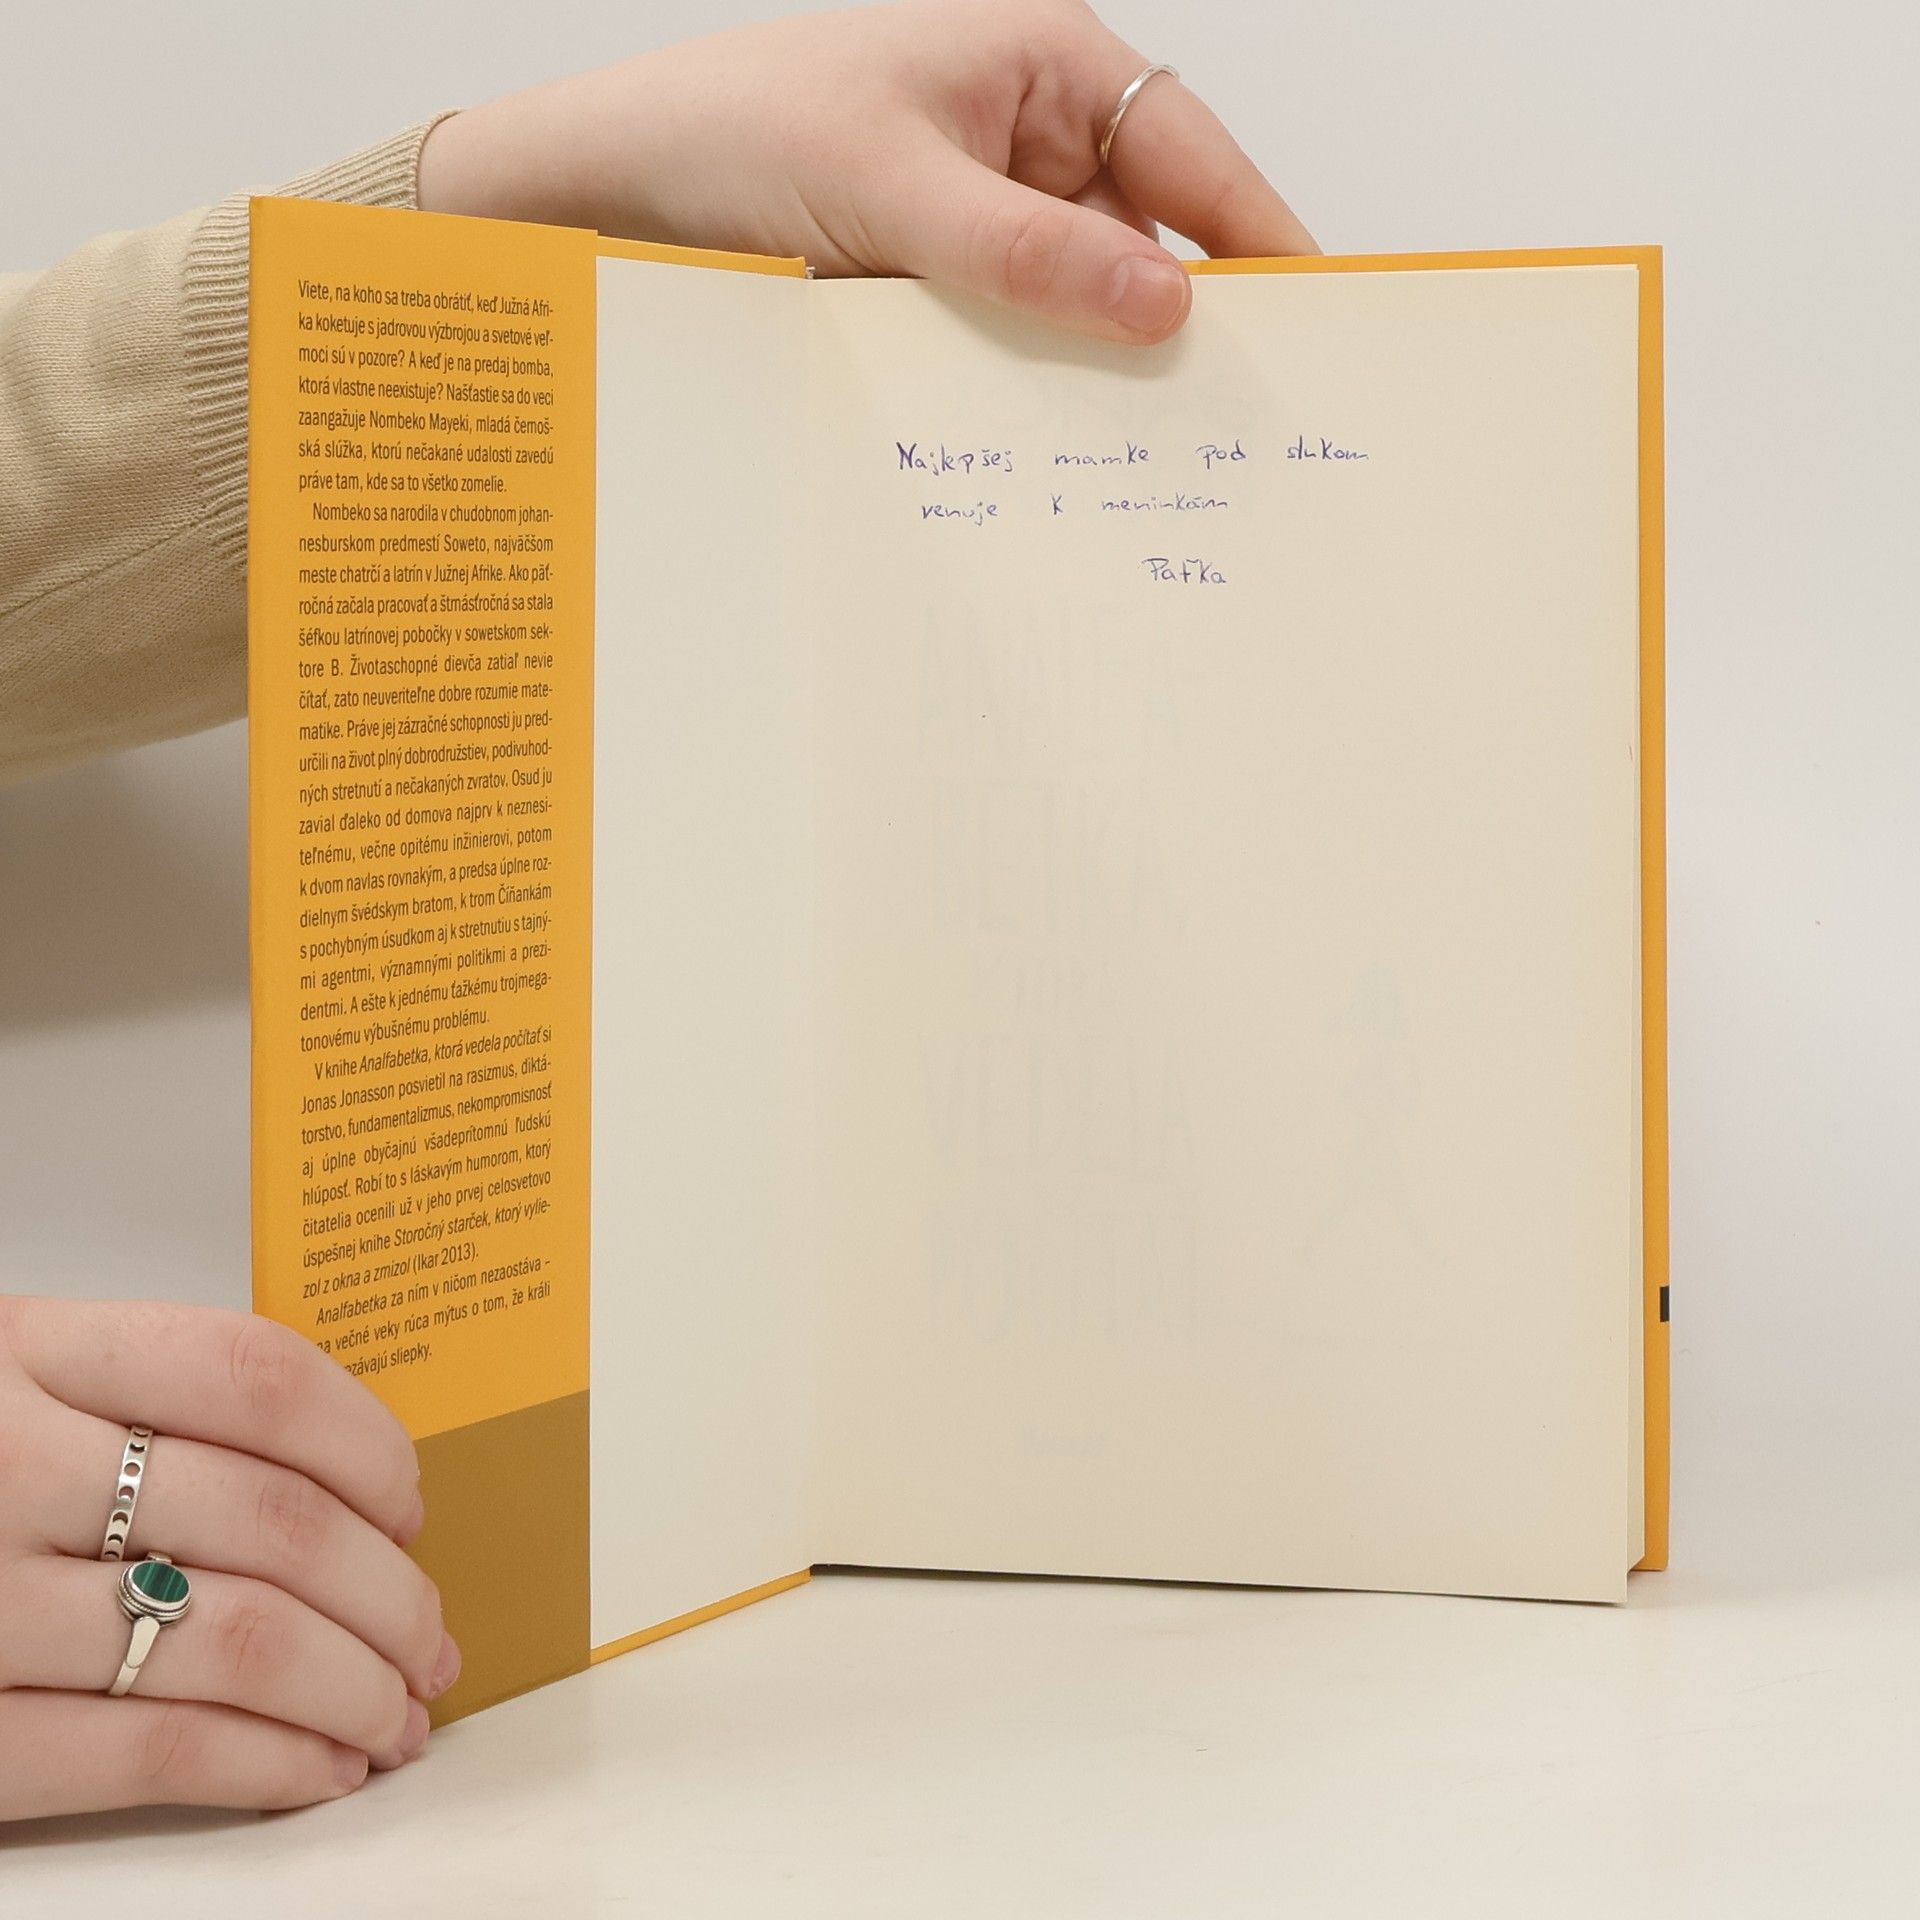 Viete, na koho sa treba obrátiť, keď Južná Afri-
ka koketuje s jadrovou výzbrojou a svetové veľ-
moci sú v pozore? A keď je na predaj bomba,
ktorá vlastne neexistuje? Našťastie sa do veci
zaangažuje Nombeko Mayeki, mladá černoš-
ská slúžka, ktorú nečakané udalosti zavedú
práve tam, kde sa to všetko zomelie.
Nombeko sa narodila v chudobnom johan-
nesburskom predmestí Soweto, najväčšom
meste chatrčí a latrín v Južnej Afrike. Ako päť-
ročná začala pracovať a štrnásťročná sa stala
šéfkou latrínovej pobočky v sowetskom sek-
tore B. Životaschopné dievča zatiaľ nevie
čítať, zato neuveriteľne dobre rozumie mate-
matike. Práve jej zázračné schopnosti ju pred-
určili na život plný dobrodružstiev, podivuhod-
ných stretnutí a nečakaných zvratov. Osud ju
zavial ďaleko od domova najprv k neznesi-
teľnému, večne opitému inžinierovi, potom
k dvom navlas rovnakým, a predsa úplne roz-
dielnym švédskym bratom, k trom Číňankám
s pochybným úsudkom aj k stretnutiu s tajný-
mi agentmi, významnými politikmi a prezi-
dentmi. A ešte k jednému ťažkému trojmega-
tonovému výbušnému problému.
V knihe Analfabetka, ktorá vedela počítať si
Jonas Jonasson posvietil na rasizmus, diktá-
torstvo, fundamentalizmus, nekompromisnosť
aj úplne obyčajnú všadeprítomnú ľudskú
hlúposť. Robí to s láskavým humorom, ktorý
čitatelia ocenili už v jeho prvej celosvetovo
úspešnej knihe Storočný starček, ktorý vylie-
zol z okna a zmizol (Ikar 2013).
Analfabetka za ním v ničom nezaostáva –
na večné veky rúca mýtus o tom, že králi
sliepky.
Najlepšej mamke pod slnkom
venuje k meninkám
Paťka